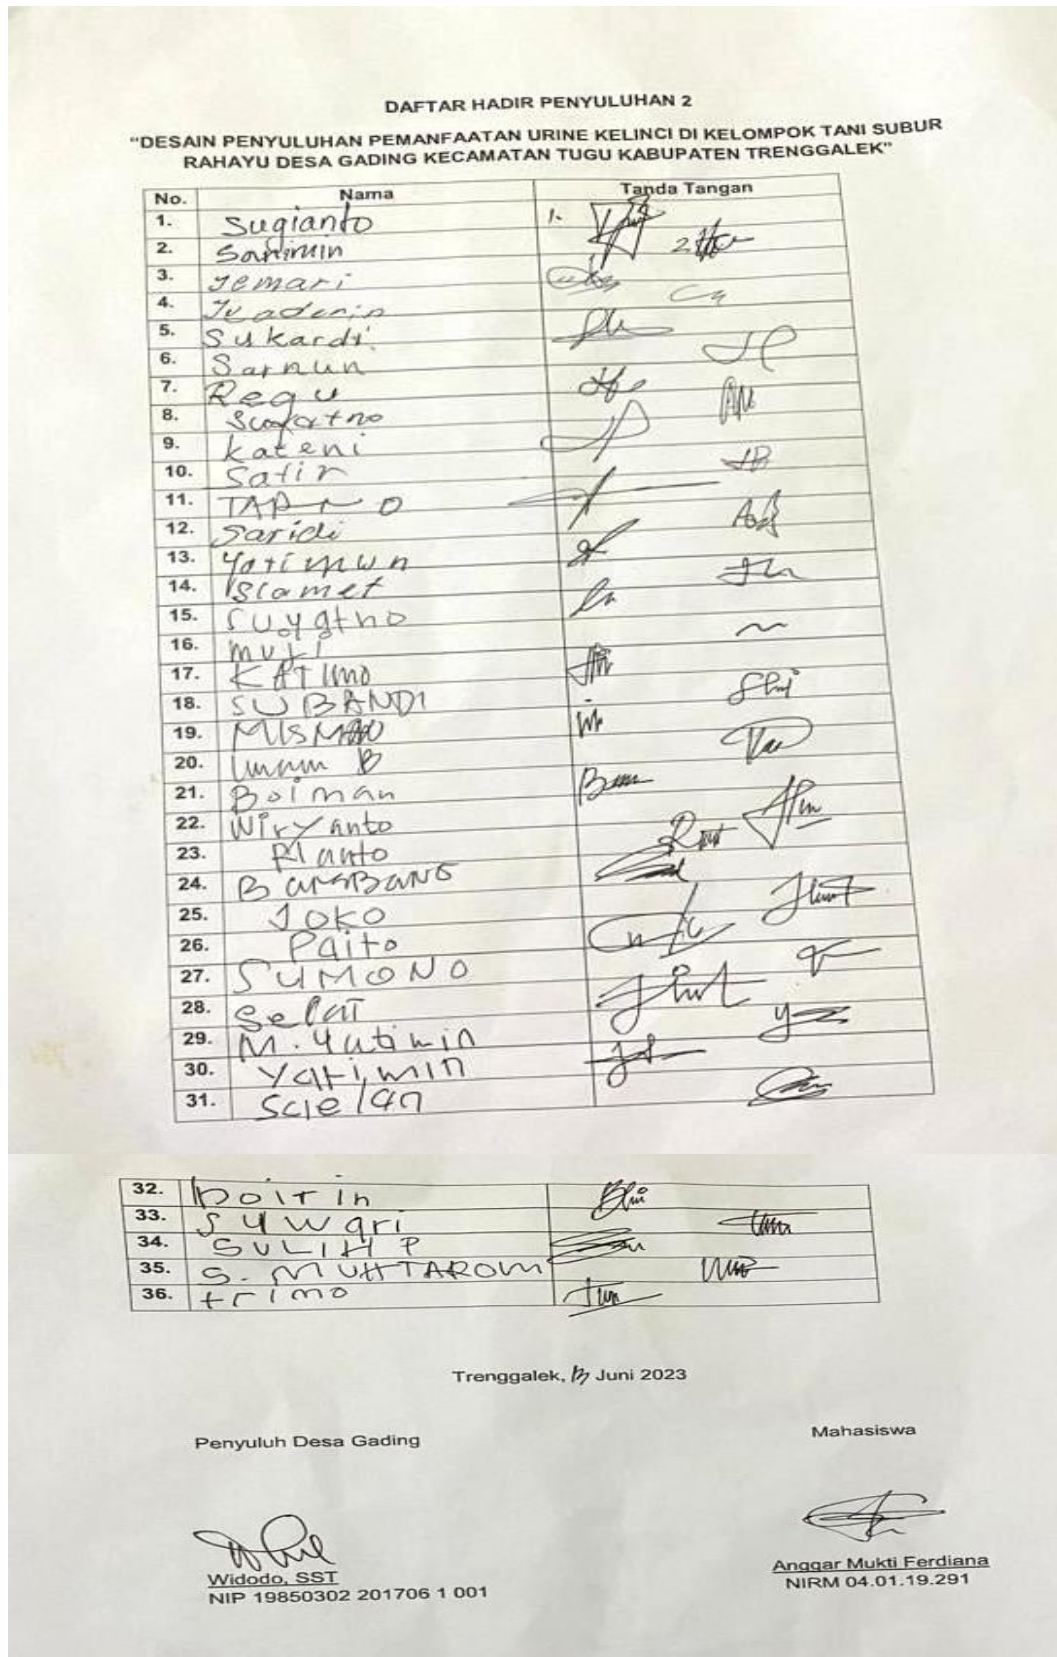 DAFTAR HADIR PENYULUHAN 2
"DESAIN PENYULUHAN PEMANFAATAN URINE KELINCI DI KELOMPOK TANI SUBUR
RAHAYU DESA GADING KECAMATAN TUGU KABUPATEN TRENGGALEK"
No. Nama Tanda Tangan
1. Sugianto 1.
2. Sanimin 2
3. Jemari
4.
5. Sukardi
6. Sarnun
7. Regu
8.
9. Kateni
10. Satir
11.
12. Saridi
13. Yatimun
14. Slamet
15.
16. muki
17. KATIMO
18. SUBANDI
19.
20. B
21. Boiman
22. Wiryanto
23. RIanto
24. BAMBANG
25. JOKO
26. Paito
27. SUMONO
28.
29. M. Yatimin
30. Yatimin
31.
32. boirin
33. Suwari
34. SULIH P
35. S. MUHTAROM
36. trimo
Trenggalek, 13 Juni 2023
Penyuluh Desa Gading Mahasiswa
Widodo, SST Anggar Mukti Ferdiana
NIP 19850302 201706 1 001 NIRM 04.01.19.291